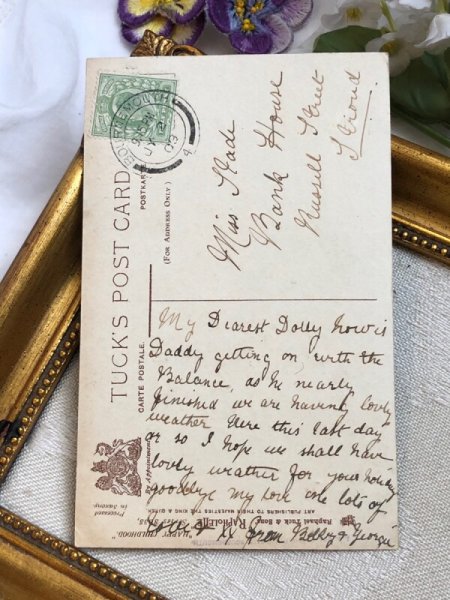 BOURNEMOUTH
4
TUCK'S POST CARD
CARTE POSTALE.
POSTKARTE
(FOR ADDRESS ONLY)
Miss Slade
Bank House
Russell Street
Stroud
My Dearest Dolly how is
Daddy getting on with the
Balance, as he nearly
finished we are having lovely
weather here this last day
or so I hope we shall have
lovely weather for your holiday
goodbye my love lots of
xx from Bobby & Georgie
By Appointment
Raphael Tuck & Sons
ART PUBLISHERS TO THEIR MAJESTIES THE KING & QUEEN
"HAPPY CHILDHOOD"
Processed
in Saxony